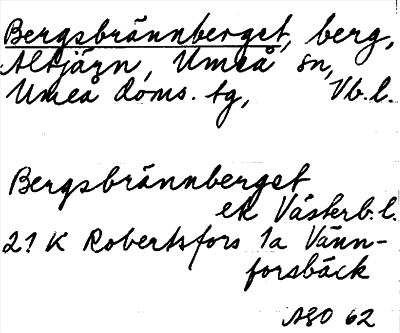 Bergsbrännberget, berg,
Altjärn, Umeå sn,
Umeå doms. tg, Vb. l.
Bergsbrännberget
ek Västerb. l.
21 K Robertsfors 1a Vänn-
forsbäck
62